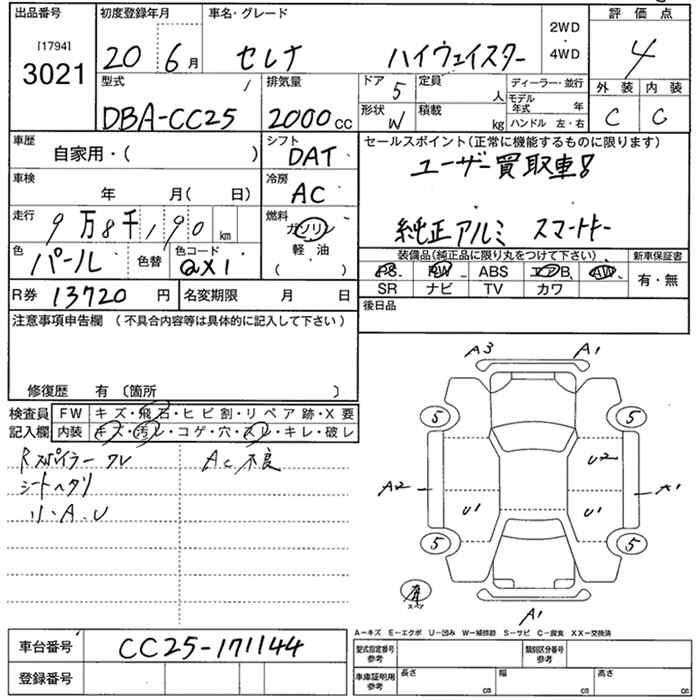 出品番号 初度登録年月 車名・グレード 評価点
[1794] 20 6月 セレナ ハイウェイスター 2WD・4WD 4
3021
型式 排気量 ドア 5 定員 人 ディーラー・並行 外装 内装
DBA-CC25 2000cc 形状 W 積載 kg モデル年式 年 C C
ハンドル 左・右
車歴 シフト セールスポイント(正常に機能するものに限ります)
自家用・( ) DAT ユーザー買取車
車検 冷房
年 月( 日) AC
走行 燃料 純正アルミ スマートキー
9万8千190km ガソリン
色 色替 色コード 軽・油 装備品(純正品に限り丸をつけて下さい) 新車保証書
パール QX1 ( ) PS PW ABS エアB AW 有・無
SR ナビ TV カワ
R券 13720円 名変期限 月 日 後日品
注意事項申告欄 (不具合内容等は具体的に記入して下さい)
修復歴 有〔箇所 〕
検査員 FW キズ・飛石・ヒビ割・リペア跡・X要
記入欄 内装 キズ・汚レ・コゲ・穴・スレ・キレ・破レ
Rスポイラー ワレ AC不良
シートヘタリ
リ・A.U
A3 A1
5 5
U2
A2 A1
U1 U1
5 5
スペア
A1
A-キズ E-エクボ U-凹み W-補修跡 S-サビ C-腐食 XX-交換済
車台番号 CC25-171144 型式指定番号 参考 類別区分番号 参考
登録番号 車庫証明用 参考 長さ cm 幅 cm 高さ cm